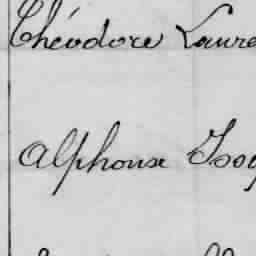 Théodore Laure
Alphonse Isoy